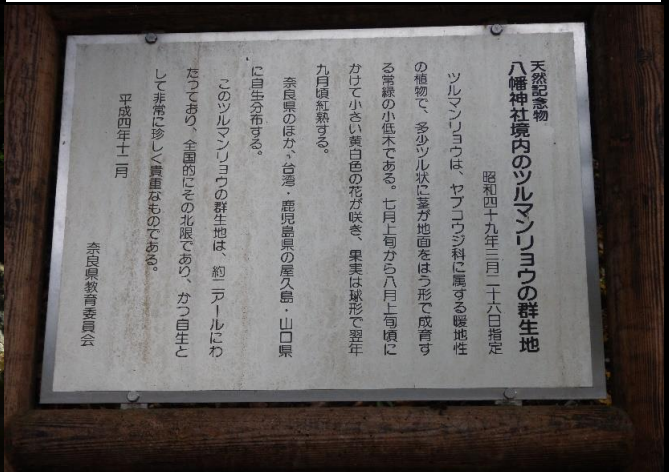 天然記念物
八幡神社境内のツルマンリョウの群生地
昭和四十九年三月二十六日指定
ツルマンリョウは、ヤブコウジ科に属する暖地性
の植物で、多少ツル状に茎が地面をはう形で成育す
る常緑の小低木である。七月上旬から八月上旬頃に
かけて小さい黄白色の花が咲き、果実は球形で翌年
九月頃紅熟する。
奈良県のほか、台湾・鹿児島県の屋久島・山口県
に自生分布する。
このツルマンリョウの群生地は、約二アールにわ
たっており、全国的にその北限であり、かつ自生と
して非常に珍しく貴重なものである。
平成四年十二月
奈良県教育委員会